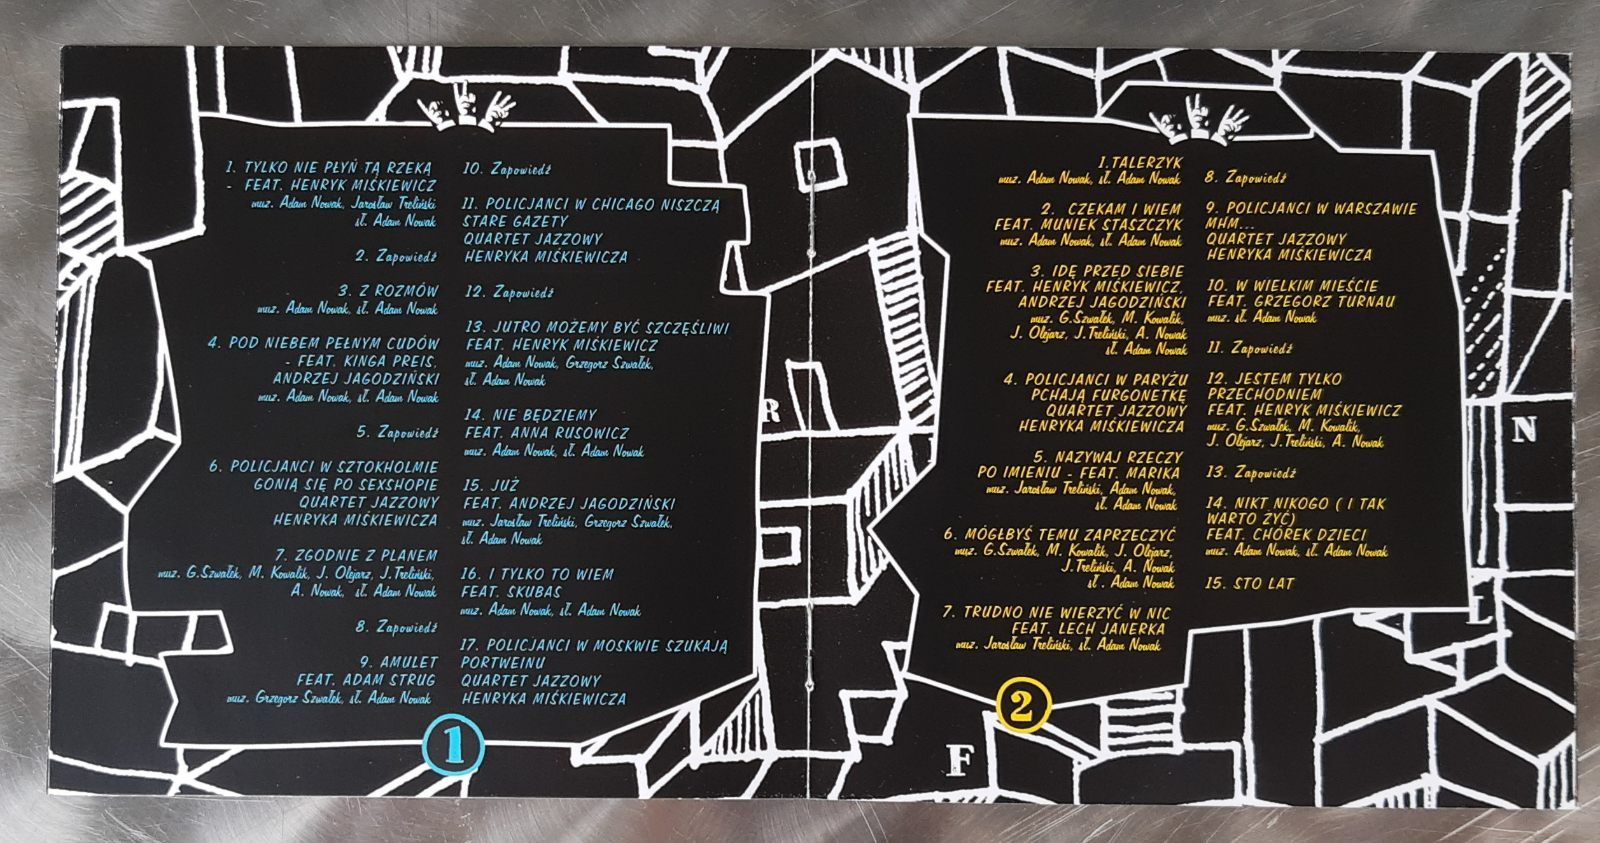 1. TYLKO NIE PŁYŃ TĄ RZEKĄ
- FEAT. HENRYK MIŚKIEWICZ
muz. Adam Nowak, Jarosław Treliński
sł. Adam Nowak
2. Zapowiedź
3. Z ROZMÓW
muz. Adam Nowak, sł. Adam Nowak
4. POD NIEBEM PEŁNYM CUDÓW
- FEAT. KINGA PREIS,
ANDRZEJ JAGODZIŃSKI
muz. Adam Nowak, sł. Adam Nowak
5. Zapowiedź
6. POLICJANCI W SZTOKHOLMIE
GONIĄ SIĘ PO SEXSHOPIE
QUARTET JAZZOWY
HENRYKA MIŚKIEWICZA
7. ZGODNIE Z PLANEM
muz. G.Szwałek, M. Kowalik, J. Olejarz, J.Treliński,
A. Nowak, sł. Adam Nowak
8. Zapowiedź
9. AMULET
FEAT. ADAM STRUG
muz. Grzegorz Szwałek, sł. Adam Nowak
10. Zapowiedź
11. POLICJANCI W CHICAGO NISZCZĄ
STARE GAZETY
QUARTET JAZZOWY
HENRYKA MIŚKIEWICZA
12. Zapowiedź
13. JUTRO MOŻEMY BYĆ SZCZĘŚLIWI
FEAT. HENRYK MIŚKIEWICZ
muz. Adam Nowak, Grzegorz Szwałek,
sł. Adam Nowak
14. NIE BĘDZIEMY
FEAT. ANNA RUSOWICZ
muz. Adam Nowak, sł. Adam Nowak
15. JUŻ
FEAT. ANDRZEJ JAGODZIŃSKI
muz. Jarosław Treliński, Grzegorz Szwałek,
sł. Adam Nowak
16. I TYLKO TO WIEM
FEAT. SKUBAS
muz. Adam Nowak, sł. Adam Nowak
17. POLICJANCI W MOSKWIE SZUKAJĄ
PORTWEINU
QUARTET JAZZOWY
HENRYKA MIŚKIEWICZA
1
R
1.TALERZYK
muz. Adam Nowak, sł. Adam Nowak
2. CZEKAM I WIEM
FEAT. MUNIEK STASZCZYK
muz. Adam Nowak, sł. Adam Nowak
3. IDĘ PRZED SIEBIE
FEAT. HENRYK MIŚKIEWICZ,
ANDRZEJ JAGODZIŃSKI
muz. G.Szwałek, M. Kowalik,
J. Olejarz, J.Treliński, A. Nowak
sł. Adam Nowak
4. POLICJANCI W PARYŻU
PCHAJĄ FURGONETKĘ
QUARTET JAZZOWY
HENRYKA MIŚKIEWICZA
5. NAZYWAJ RZECZY
PO IMIENIU - FEAT. MARIKA
muz. Jarosław Treliński, Adam Nowak,
sł. Adam Nowak
6. MÓGŁBYŚ TEMU ZAPRZECZYĆ
muz. G.Szwałek, M. Kowalik, J. Olejarz,
J.Treliński, A. Nowak
sł . Adam Nowak
7. TRUDNO NIE WIERZYĆ W NIC
FEAT. LECH JANERKA
muz. Jarosław Treliński, sł. Adam Nowak
8. Zapowiedź
9. POLICJANCI W WARSZAWIE
MHM...
QUARTET JAZZOWY
HENRYKA MIŚKIEWICZA
10. W WIELKIM MIEŚCIE
FEAT. GRZEGORZ TURNAU
muz. sł. Adam Nowak
11. Zapowiedź
12. JESTEM TYLKO
PRZECHODNIEM
FEAT. HENRYK MIŚKIEWICZ
muz. G.Szwałek, M. Kowalik,
J. Olejarz, J.Treliński, A. Nowak
13. Zapowiedź
14. NIKT NIKOGO ( I TAK
WARTO ŻYĆ)
FEAT. CHÓREK DZIECI
muz. Adam Nowak, sł. Adam Nowak
15. STO LAT
2
N
L
F